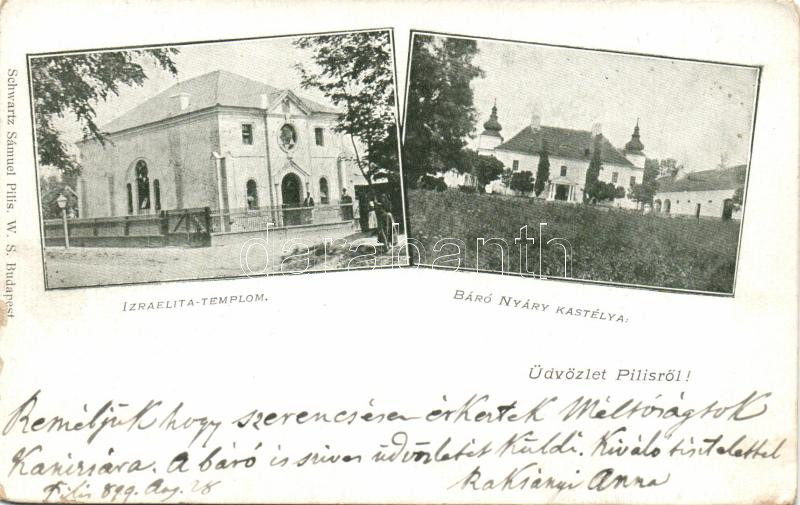 Schwartz Sámuel Pilis. W. S. Budapest
IZRAELITA-TEMPLOM.
BÁRÓ NYÁRY KASTÉLYA:
darabanth
Üdvözlet Pilisről!
Reméljük hogy szerencsésen érkeztek Méltóságtok
Kanizsára. A báró is szives üdvözletét küldi. Kiváló tisztelettel
Pilis 899. Aug. 28 Raksányi Anna